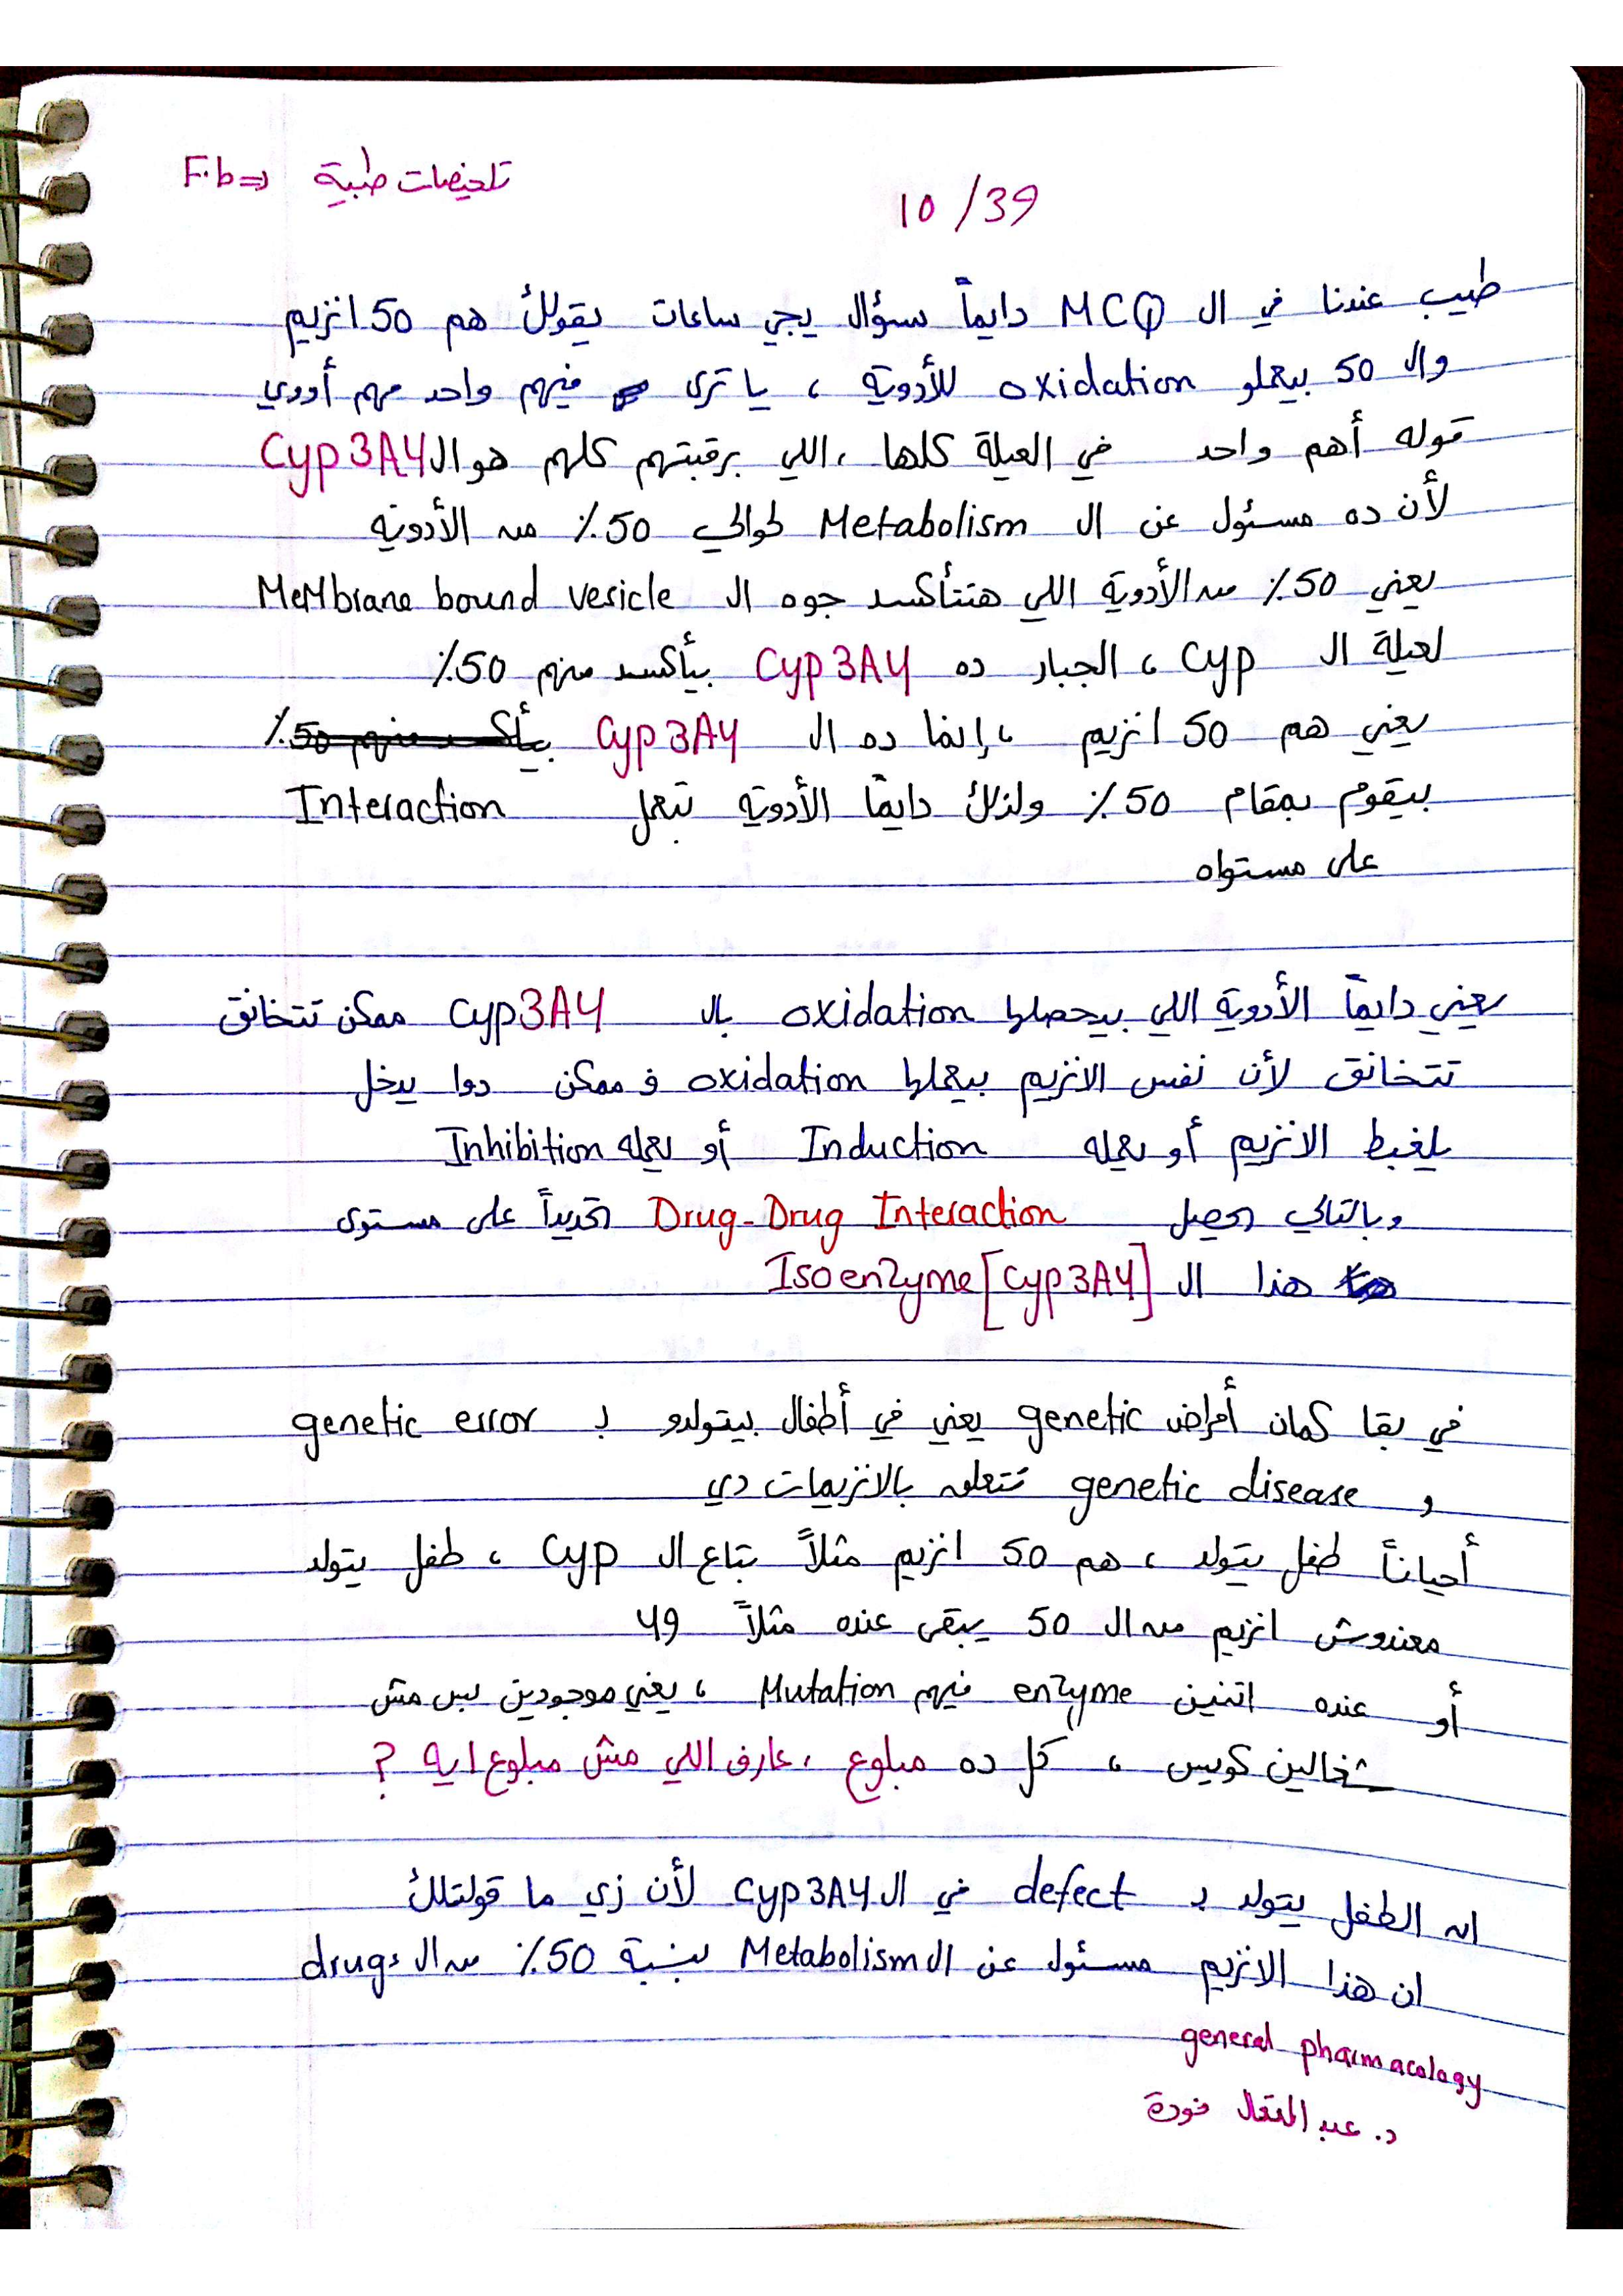 تلخيصات طبية ⇐ F.b
10/39
طيب عندنا في ال MCQ دايماً سؤال يجي ساعات يقولك هم 50 انزيم
وال 50 بيعملو oxidation للأدوية ، يا ترى فيهم واحد مهم أووي
قوله أهم واحد في العيلة كلها ، اللي برقبتهم كلهم هو ال Cyp3A4
لأن ده مسئول عن ال Metabolism لحوالي 50٪ من الأدوية
يعني 50٪ من الأدوية اللي هتتأكسد جوه ال MeMbrane bound vesicle
لعيلة ال Cyp ، الجبار ده Cyp3A4 بيأكسد منهم 50٪
يعني هم 50 انزيم ، إنما ده ال Cyp3A4 بيأكسد منهم 50٪
بيقوم بمقام 50٪ ولذلك دايماً الأدوية تبعمل Interaction
على مستواه
يعني دايماً الأدوية اللي بيحصلها oxidation بال Cyp3A4 ممكن تتخانق
تتخانق لأن نفس الانزيم بيعملها oxidation ف ممكن دوا يدخل
يلغبط الانزيم أو يعمله Induction أو يعمله Inhibition
وبالتالي يحصل Drug-Drug Interaction تحديداً على مستوى
هذا ال Isoenzyme [Cyp3A4]
في بقا كمان أمراض genetic يعني في أطفال بيتولدو ب genetic error
و genetic disease تتعلق بالانزيمات دي
أحياناً طفل يتولد ، هم 50 انزيم مثلاً بتاع ال Cyp ، طفل يتولد
معندوش انزيم من ال 50 يبقى عنده مثلاً 49
أو عنده اتنين enzyme فيهم Mutation ، يعني موجودين بس مش
شغالين كويس ، كل ده مبلوع ، عارف اللي مش مبلوع ايه ?
ان الطفل يتولد ب defect في ال Cyp3A4 لأن زي ما قولتلك
ان هذا الانزيم مسئول عن ال Metabolism بنسبة 50٪ من ال drugs
general pharmacology
د. عبد المتعال فودة